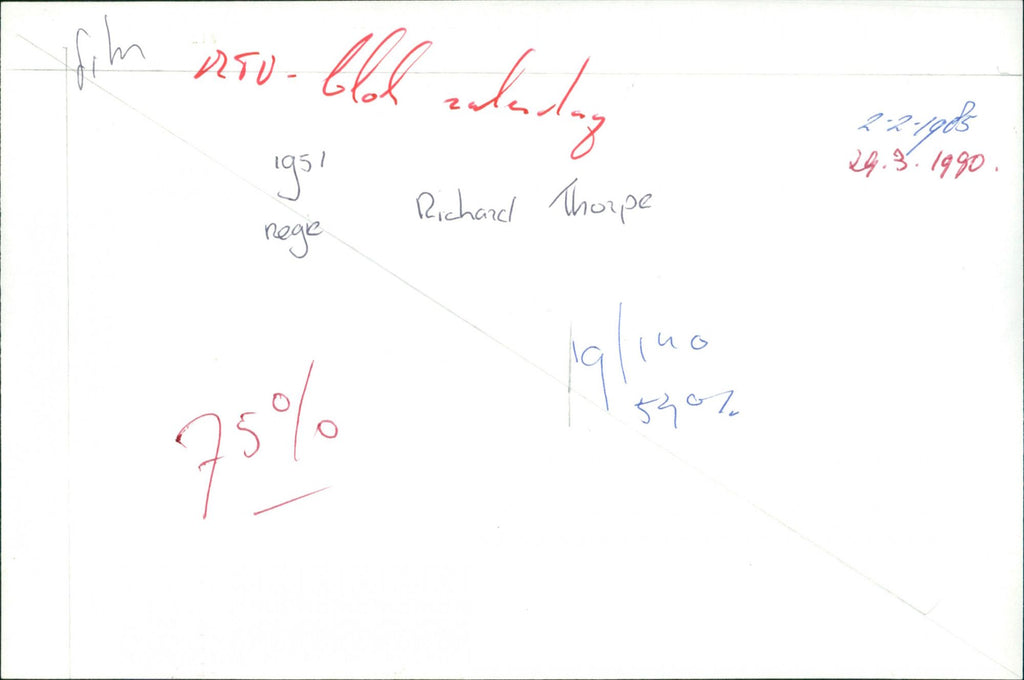 film
RTV - blok zaterdag
2-2-1985
29.3.1990.
1951
regie Richard Thorpe
19/140
540%
75%